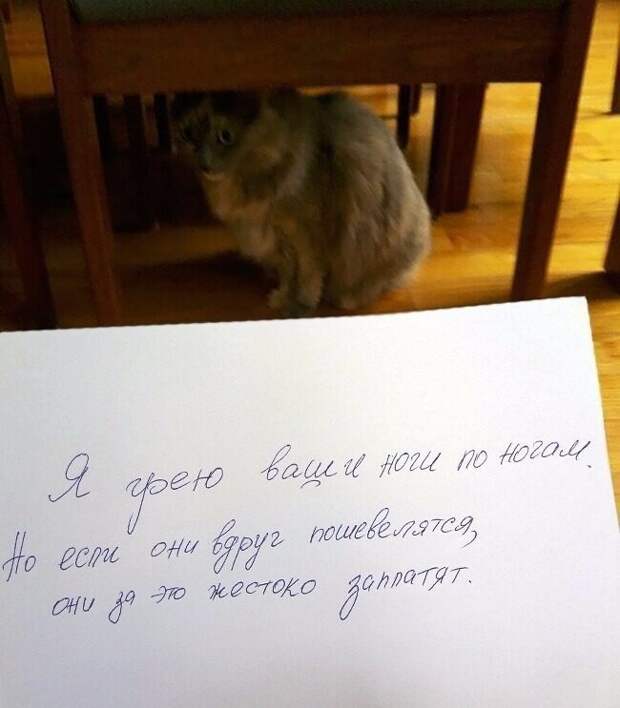 Я грею ваши ноги по ногам.
Но если они вдруг пошевелятся,
они за это жестоко заплатят.